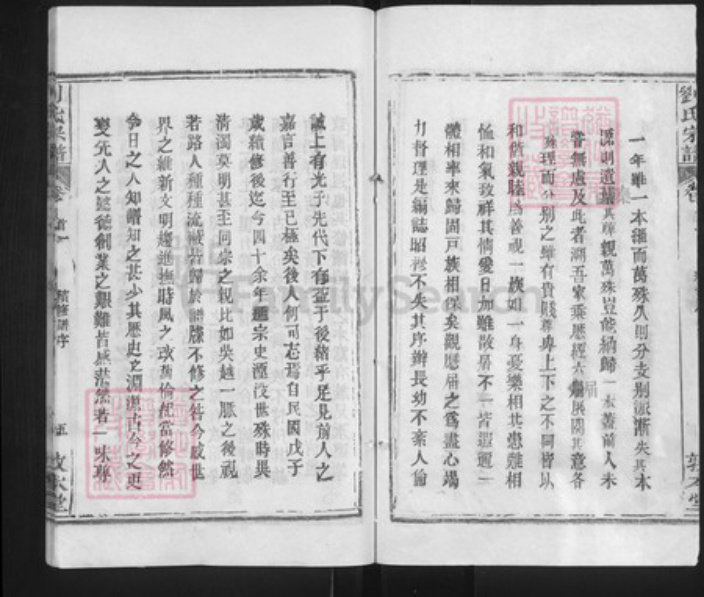 劉氏宗譜
一年雖一本滙而萬殊久則分支別派漸失其本
源則遺其尊親萬殊豈能納歸一本蓋前人未
嘗無慮及此者溯吾家乘歷經六屆展閱其意各
理而分別之雖有貴賤尊卑上下之不同皆以
和偕親睦為善視一族如一身憂樂相共患難相
恤和氣致祥其情愛日加雖散居不一皆遐邇一
體相率來歸固戶族相保矣觀歷屆之為盡心竭
力督理是編誌昭穆不失其序辦長幼不紊人倫
敦本堂
誠上有光于先代下有益于後緒乎足見前人之
嘉言善行至已極矣後人何可忘焉自民國戊子
歲續修後迄今四十余年遞宗史湮沒世殊時異
清濁莫明甚至同宗之親比如吳越一脈之後視
若路人種種流弊皆歸於譜牒不修之咎今感世
界之維新文明趨進撫時風之改倫紀當修然
今日之人知譜知之甚少其歷史之淵源古今之更
變先人之懿德創業之艱難皆感茫然者一味尊
劉氏宗譜
卷首
續修譜序
五
敦本堂
FamilySearch